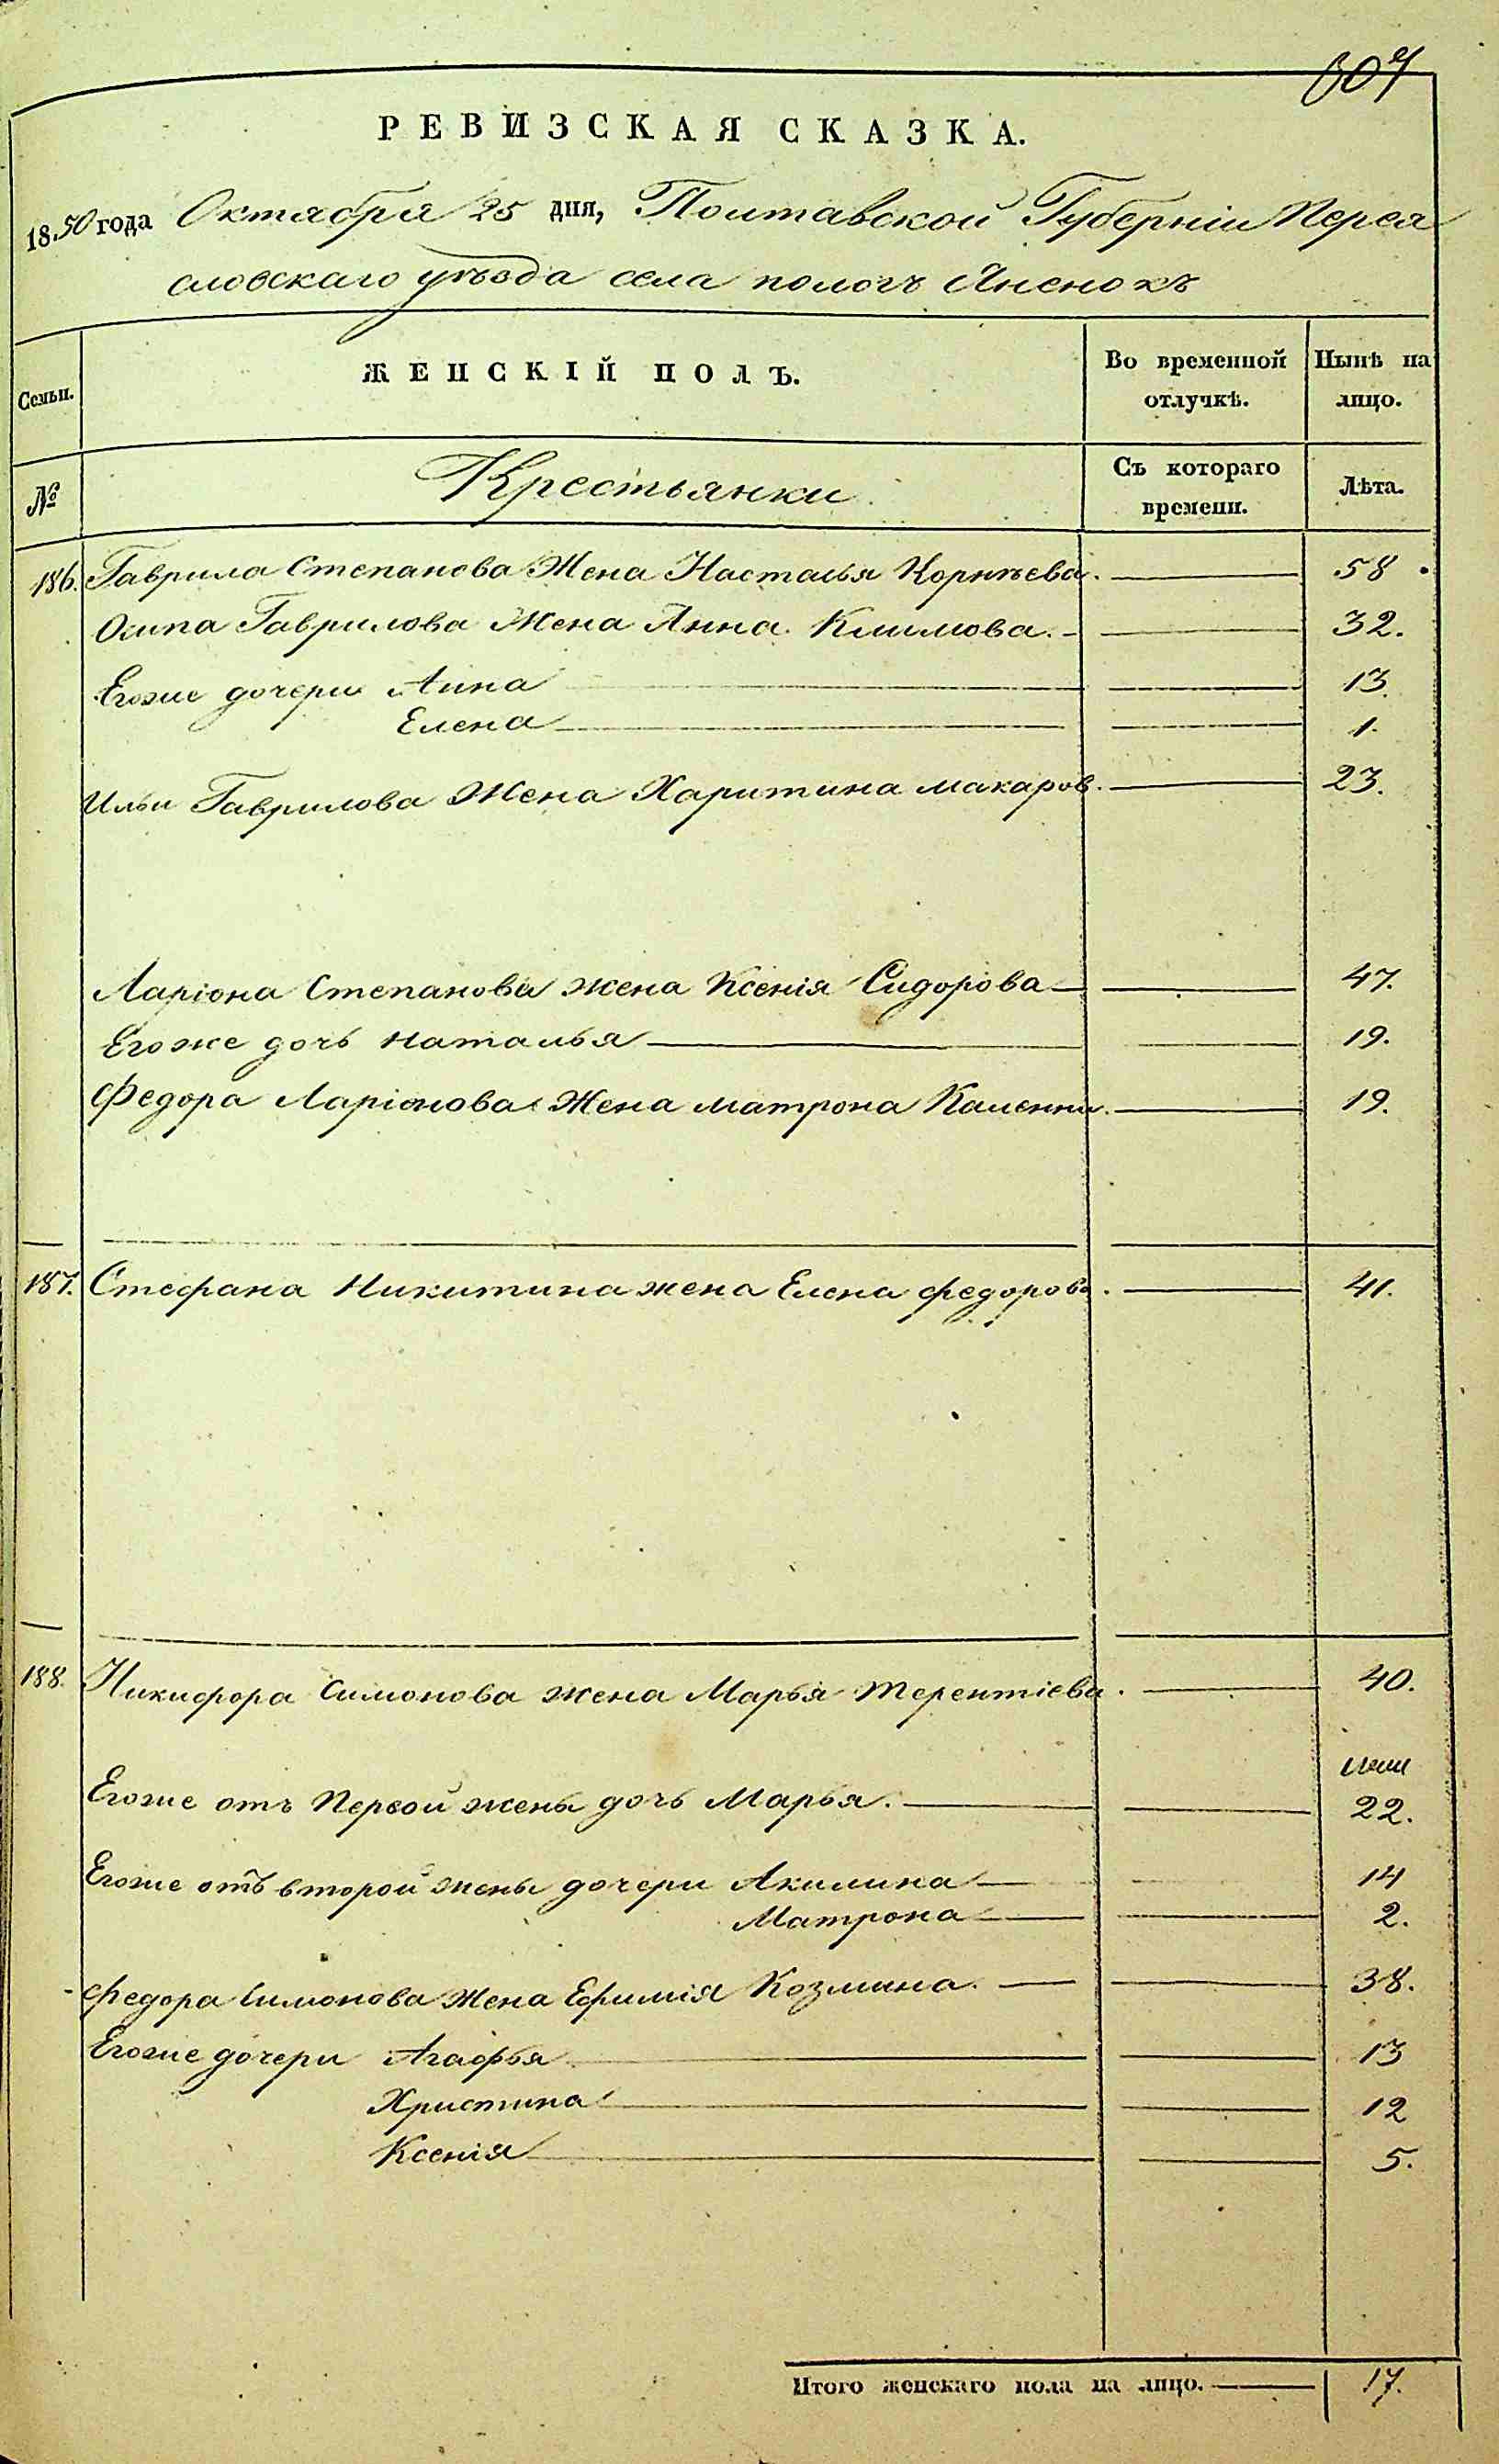 607
РЕВИЗСКАЯ СКАЗКА.
1850 года Октября 25 дня, Полтавской Губерніи Перея
словскаго уѣзда села пологъ Яненокъ
Семьи.
ЖЕНСКІЙ ПОЛЪ.
Во временной отлучкѣ.
Нынѣ на лицо.
№
Крестьянки
Съ котораго времени.
Лѣта.
186. Гаврила Степанова Жена Насталья Корнѣева. 58
Олипа Гаврилова Жена Анна Климова. 32.
Егоже дочери Анна 13.
Елена 1.
Ильи Гаврилова Жена Харитина макаров. 23.
Ларіона Степанова жена Ксенія Сидорова 47.
Егоже дочь Наталья 19.
Федора Ларіонова Жена матрона Каленик. 19.
187. Стефана Никитина жена Елена федорова. 41.
188. Никифора Симонова жена Марья Терентіева. 40.
Егоже отъ Первой жены дочь Марья. 22.
Егоже отъ второй жены дочери Акилина 14
Матрона 2.
федора Симонова Жена Ефимія Козмина. 38.
Егоже дочери Агафья 13
Христина 12
Ксенія 5.
Итого женскаго пола на лицо. 17.